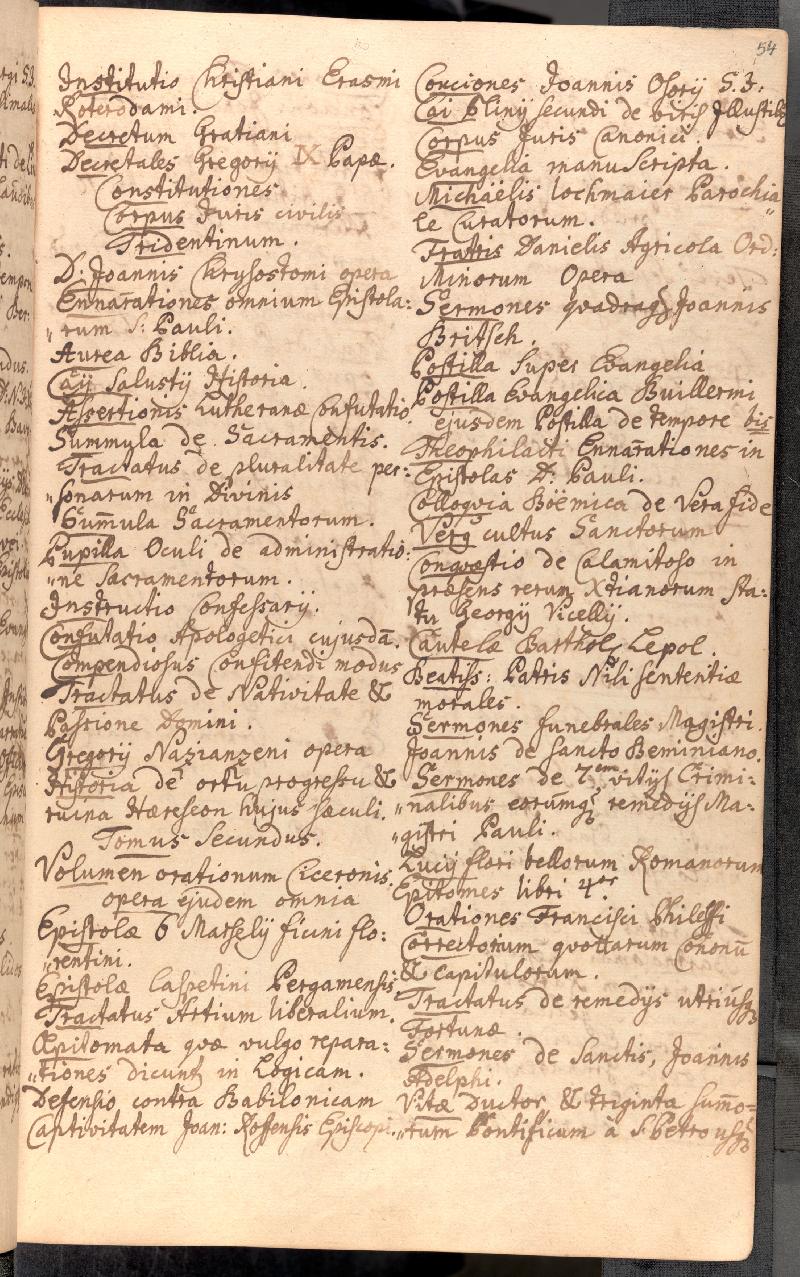 54
Institutio Christiani Erasmi
Roterodami.
Decretum Gratiani
Decretales Gregorij IX Papæ.
Constitutiones
Corpus Juris civilis
Tridentinum.
D: Joannis Chrysostomi opera
Ennarationes omnium Epistola:
"rum S: Pauli.
Aurea Biblia.
Caÿ Salustÿ Historia.
Assertionis Lutheranæ Confutatio
Summula de Sacramentis.
Tractatus de pluralitate per:
"sonarum in Divinis
Sum̄ula Sacramentorum.
Pupilla Oculi de administratio:
"ne Sacramentorum.
Instructio Confessarÿ.
Confutatio Apologetici cujusdā.
Compendiosus Confitendi modus
Tractatus de Nativitate &
Passione Domini.
Gregorÿ Nazianzeni opera
Historia de ortu progressu &
ruina Hæreseon hujus sæculi.
Tomus Secundus.
Volumen orationum Ciceronis.
opera ejudem omnia
Epistolæ 6 Marselÿ ficini flo:
"rentini.
Epistolæ Caspetini Pergamensis
Tractatus Artium liberalium.
Æpitomata quæ vulgo repara:
"tiones dicunt in Logicam.
Defensio contra Babilonicam
Captivitatem Joan: Roffensis Episcopi.
Conciones Joannis Osorÿ S.J.
Cai Plinÿ secundi de viris Jllustib9
Corpus Juris Canonici.
Evangelia manuScripta.
Michaëlis lochmaier Parochia
le Curatorum. "
Fratris Danielis Agricola Ord:
Minorum Opera
Sermones quadrag: Joannis
Britsch.
Postilla Super Evangelia
Postilla Evangelica Builler̃mi
ejusdem Postilla de tempore bis
Theophilacti Ennarationes in
Epistolas D: Pauli.
Colloquia Böemica de Vera fide
Verq cultus Sanctorum
Conquæstio de Calamitoso in
præsens rerum Xtianorum sta:
tu Georgÿ Vicellÿ.
Cautelæ Barthol: Cepol.
Beatiss: Patris Nili sententiæ
morales.
Sermones funebrales Magistri
Joannis de Sancto Beminiano.
Sermones de 7em vitÿs Crimi:
"nalibus eorumq remedÿs Ma:
"gistri Pauli.
Lucÿ flori bellorum Romanorum
Epitomes libri 4or.
Orationes Francisci Philelfi
Correctorium quottarum Cononū
& capitulorum.
Tractatus de remedÿs utriusq
Fortunæ.
Sermones de Sanctis, Joannis
Adelphi.
Vitæ Ductor & triginta sum̄o=
"rum Pontificum à S Petro usq